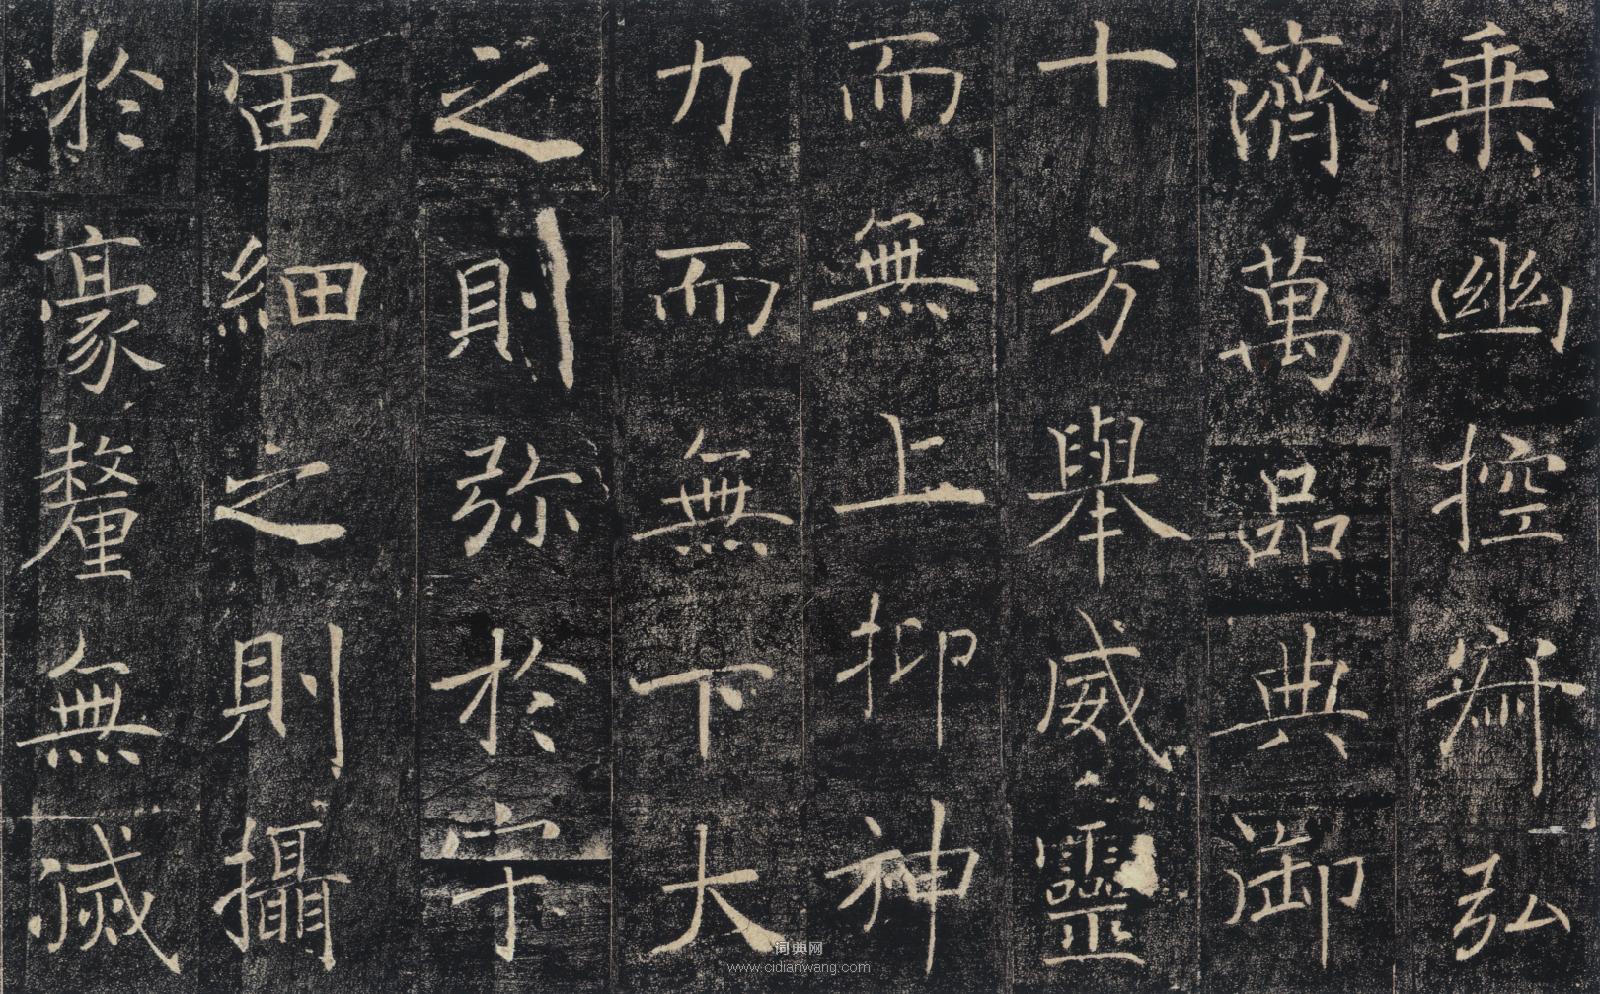 乘幽控寂弘
濟萬品典御
十方舉威靈
而無上抑神
力而無下大
之則弥於宇
宙細之則攝
於豪釐無滅
词典网
www.cidianwang.com